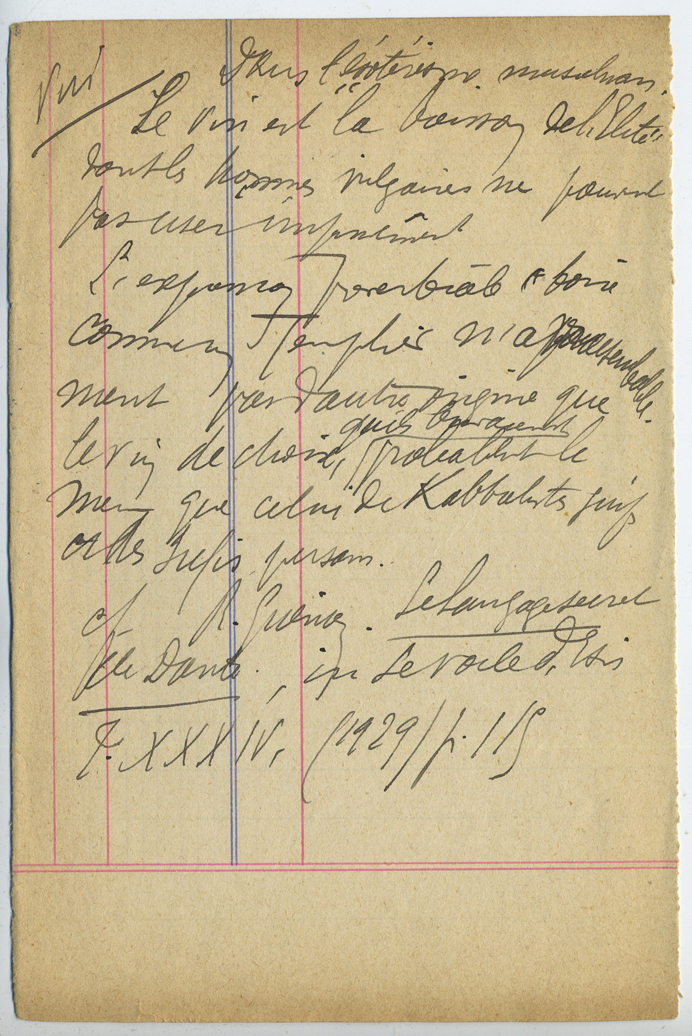 Vin
Dans l'ésotérisme musulman.
"Le vin est la boisson de l'Élite"
dont les hommes vulgaires ne peuvent
pas user impunément
L'expression proverbiale "boire
comme un Templier n'a vraisemblable-
ment pas d'autre origine que
qu'ils buvaient
le vin de choix, probablement le
même que celui de Kabbalistes juifs
et des Sufis persans.
cf R. Guénon. Le Langage secret
de Dante, in Le voile d'Isis
T. XXXIV, (1929) p.